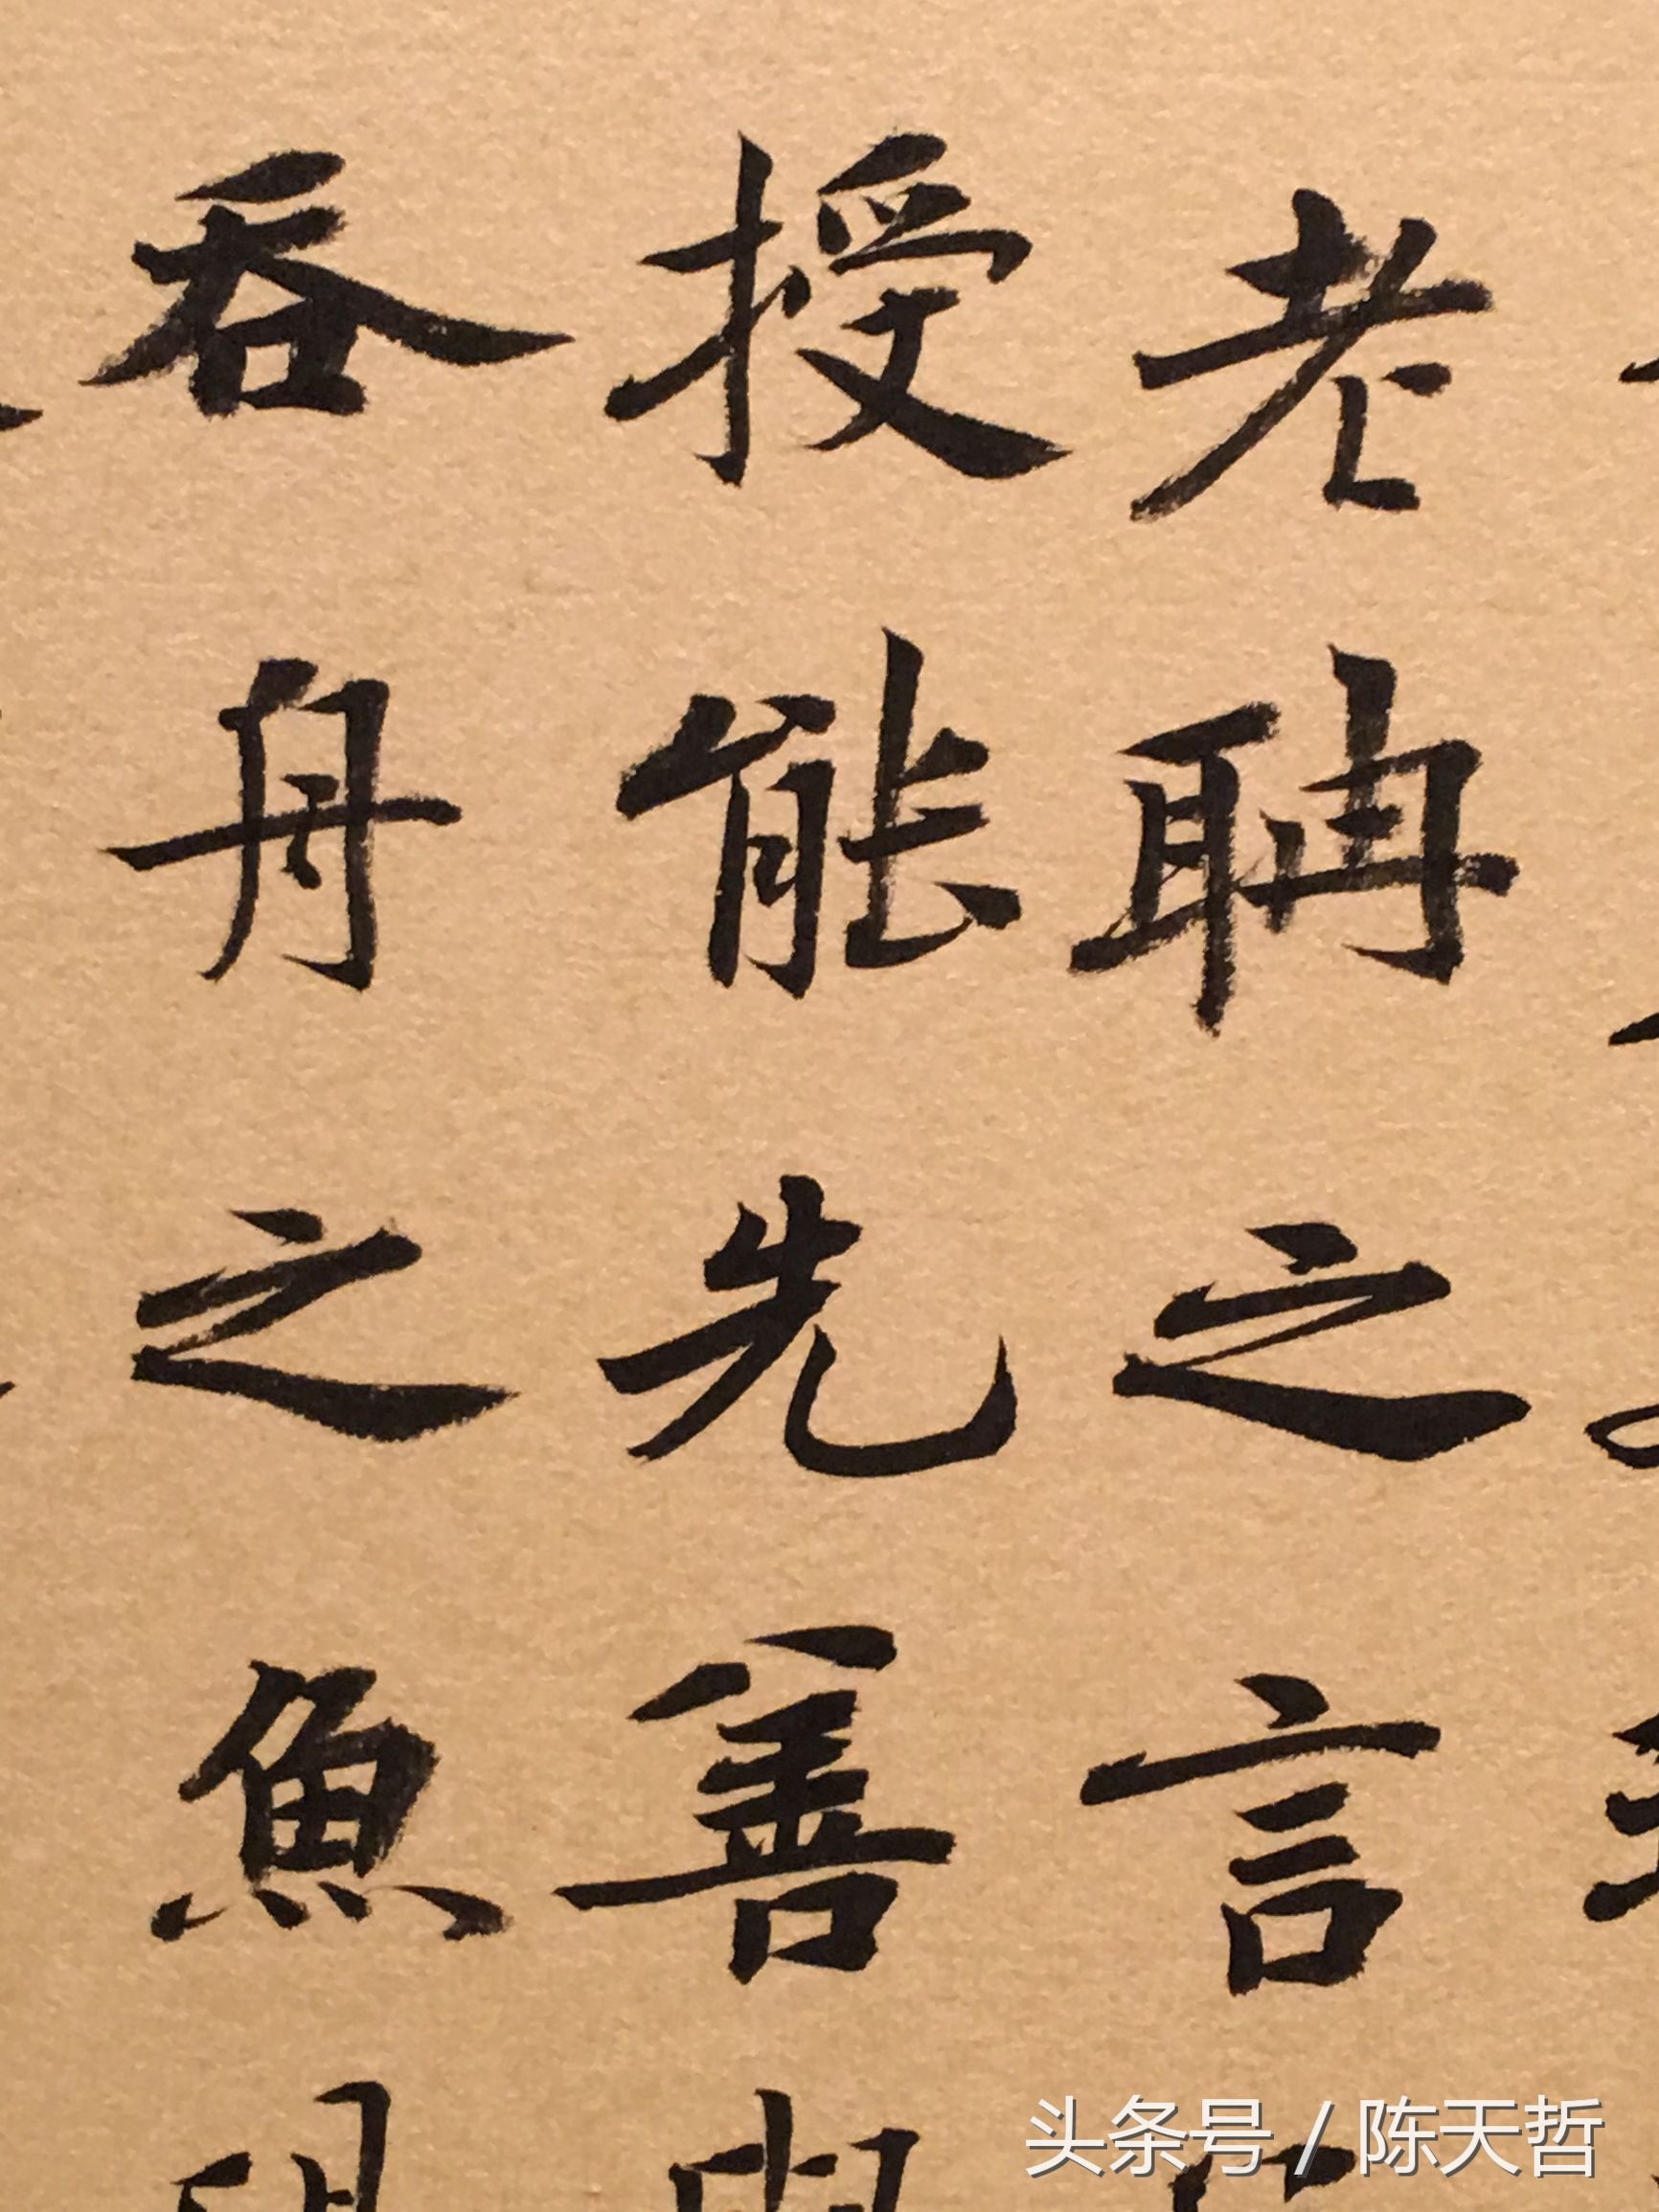 老聃之言
授能先善
吞舟之魚
头条号 / 陈天哲